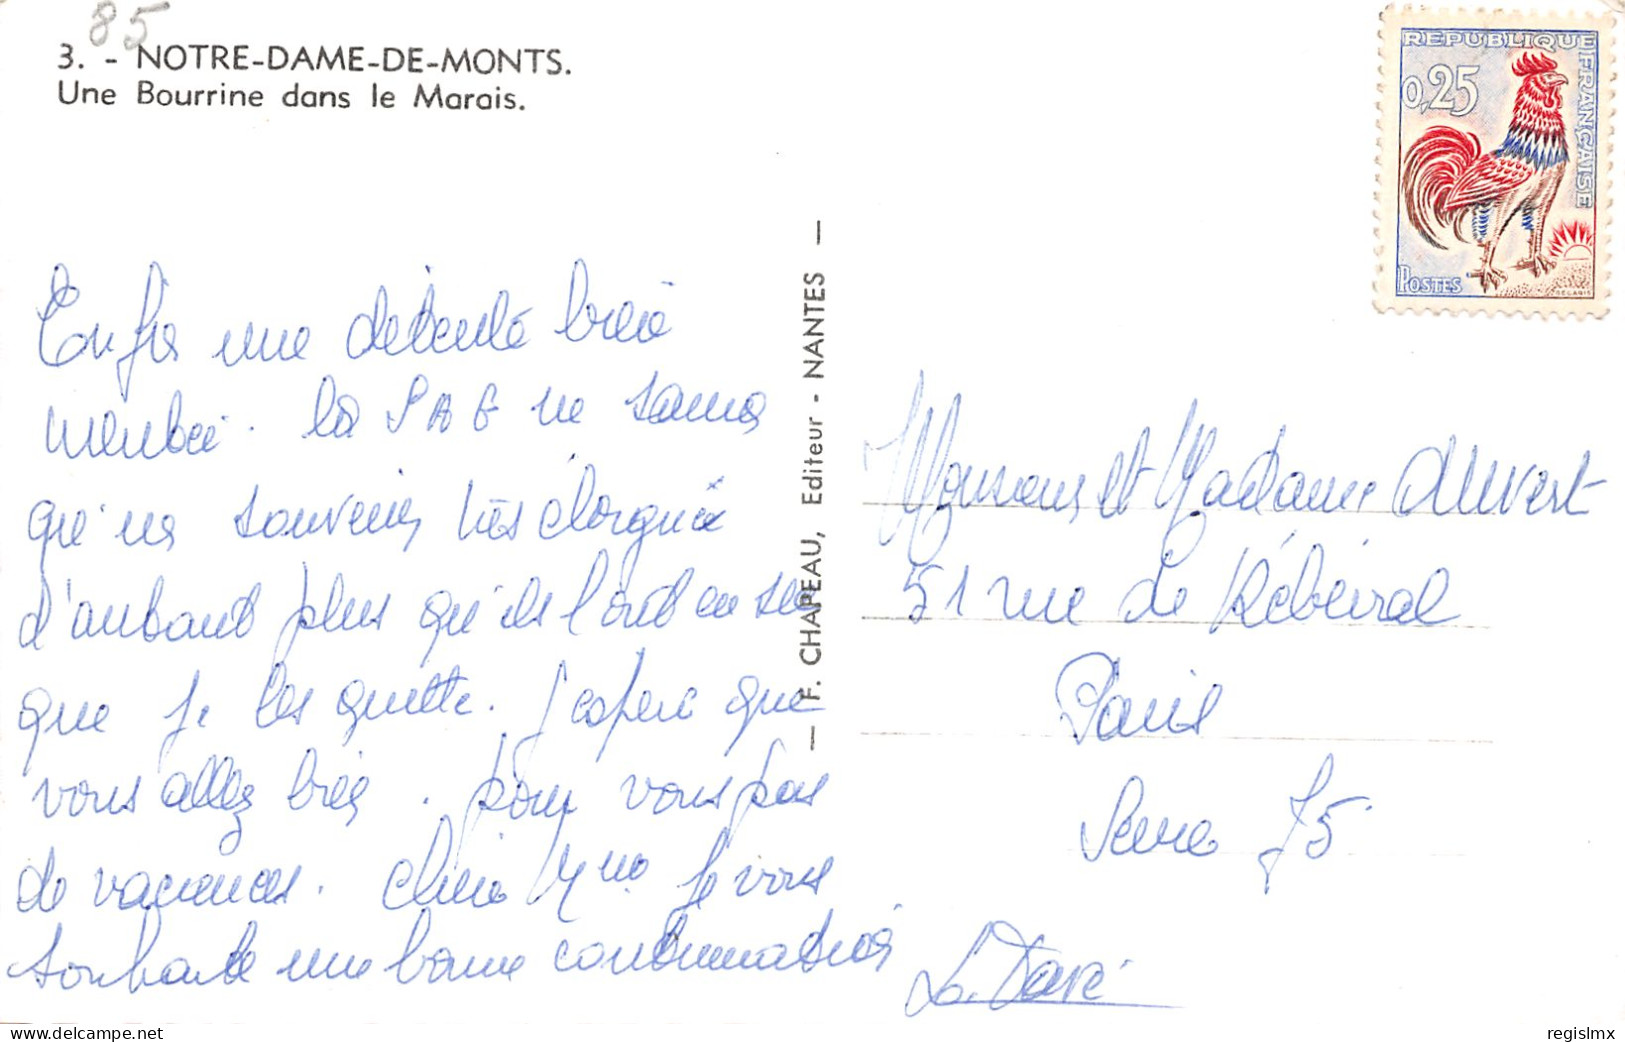 85
3. - NOTRE-DAME-DE-MONTS.
Une Bourrine dans le Marais.
REPUBLIQUE FRANÇAISE
0,25
POSTES
DECARIS
— F. CHAPEAU, Editeur - NANTES —
Enfin une détente bien
méritée. la S A G ne sera
qu'un souvenir très éloigné
d'autant plus qu'ils l'ont en
que je les quitte. J'espère que
vous allez bien. pour vous pas
de vacances. Chère Mme je vous
souhaite une bonne continuation
Monsieur et Madame Auvert
51 rue de Rébéval
Paris
Seine 75